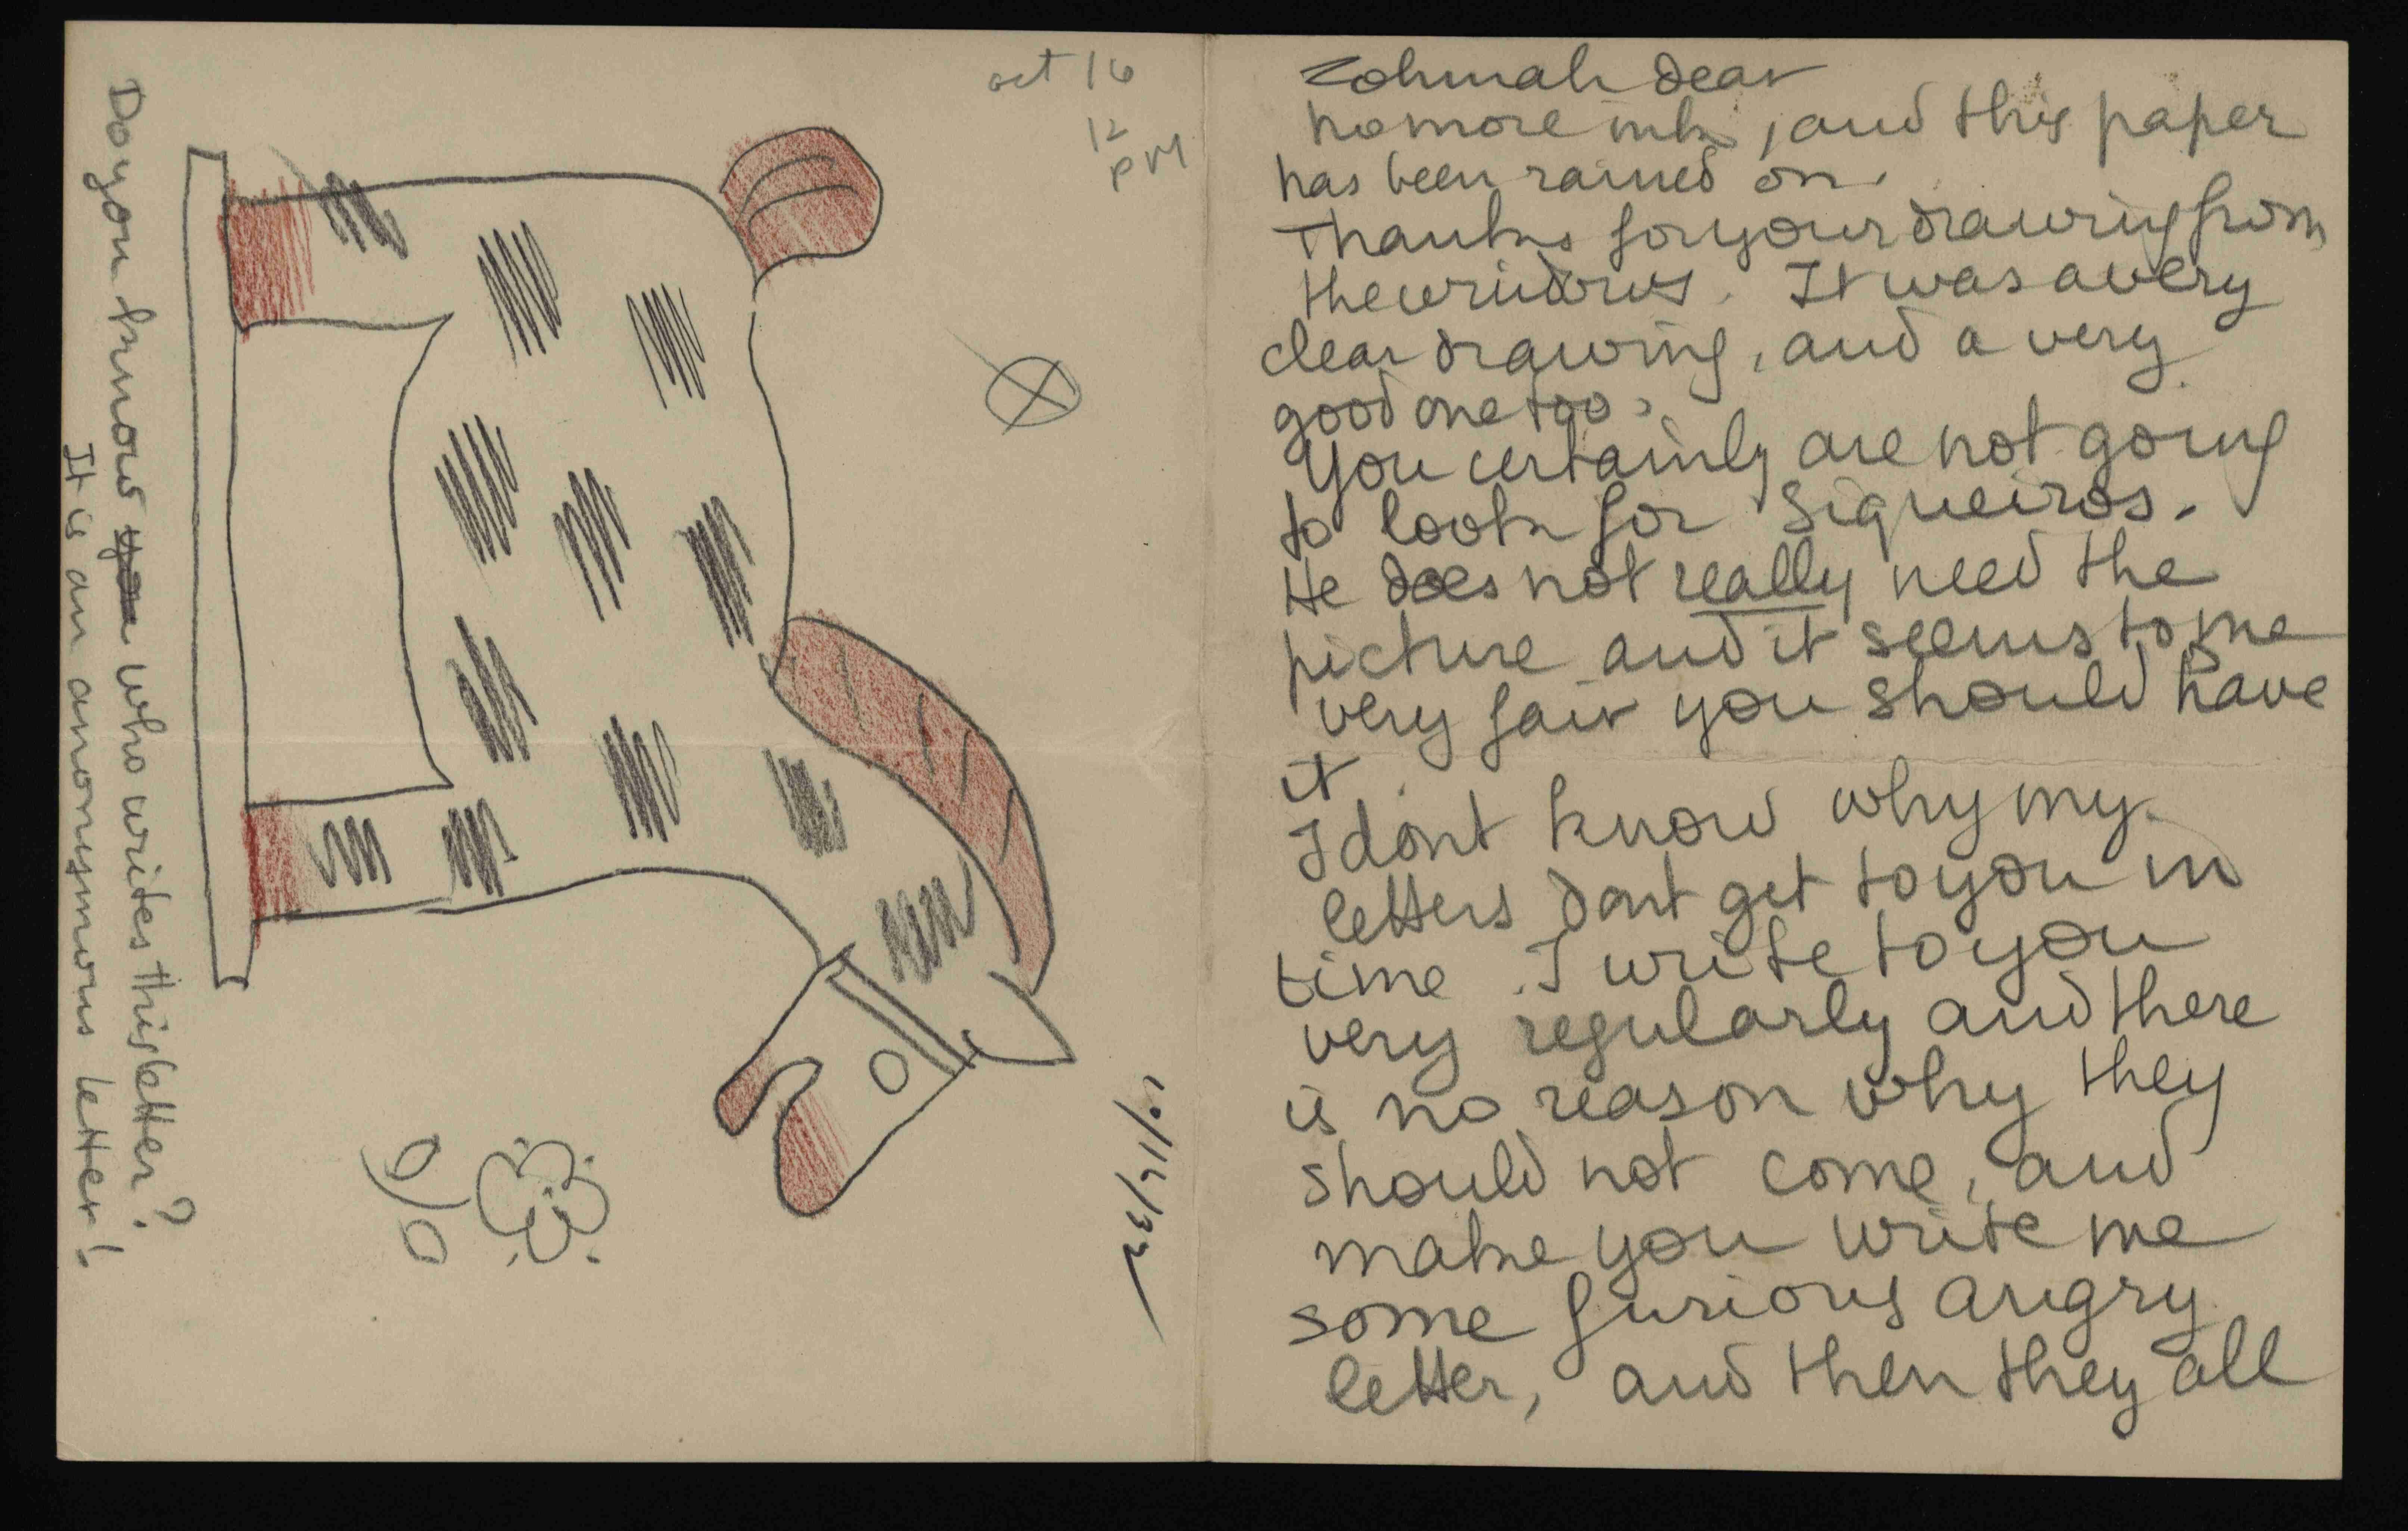 oct 16
12
PM
Do you know you who writes this letter?
It is an anonymous letter!
Zohmah dear
no more ink, and this paper
has been rained on.
Thanks for your drawing from
the windows. It was a very
clear drawing, and a very
good one too.
You certainly are not going
to look for Siqueiros.
He does not really need the
picture and it seems to me
very fair you should have
it.
I dont know why my
letters dont get to you in
time. I write to you
very regularly and there
is no reason why they
should not come, and
make you write me
some furious angry
letter, and then they all